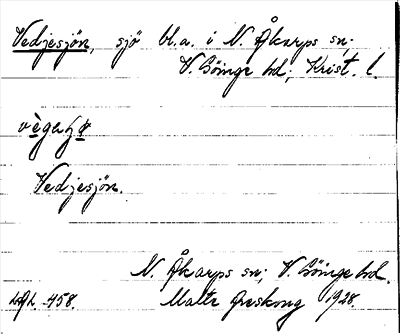 Vedjesjön, sjö bl.a. i N. Åkarps sn;
V. Göinge hd; Krist. l.
Vedjesjön.
N. Åkarps sn; V. Göinge hd.
458. Malte Areskoug 1928.